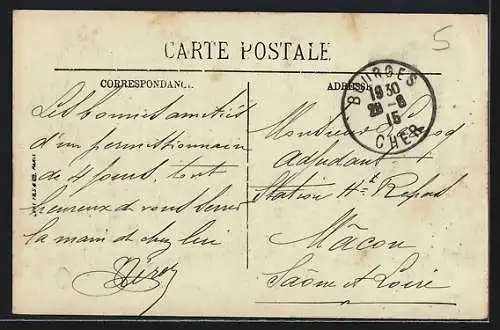 CARTE POSTALE
5
CORRESPONDANCE
ADRESSE
BOURGES
19 30
28 -6
15
CHER
Les bonnes amitiés
d'un permissionnaire
de 4 jours, tout
heureux de vous serrer
la main de chez lui
Monsieur
Adjudant
Station
Mâcon
Saône et Loire